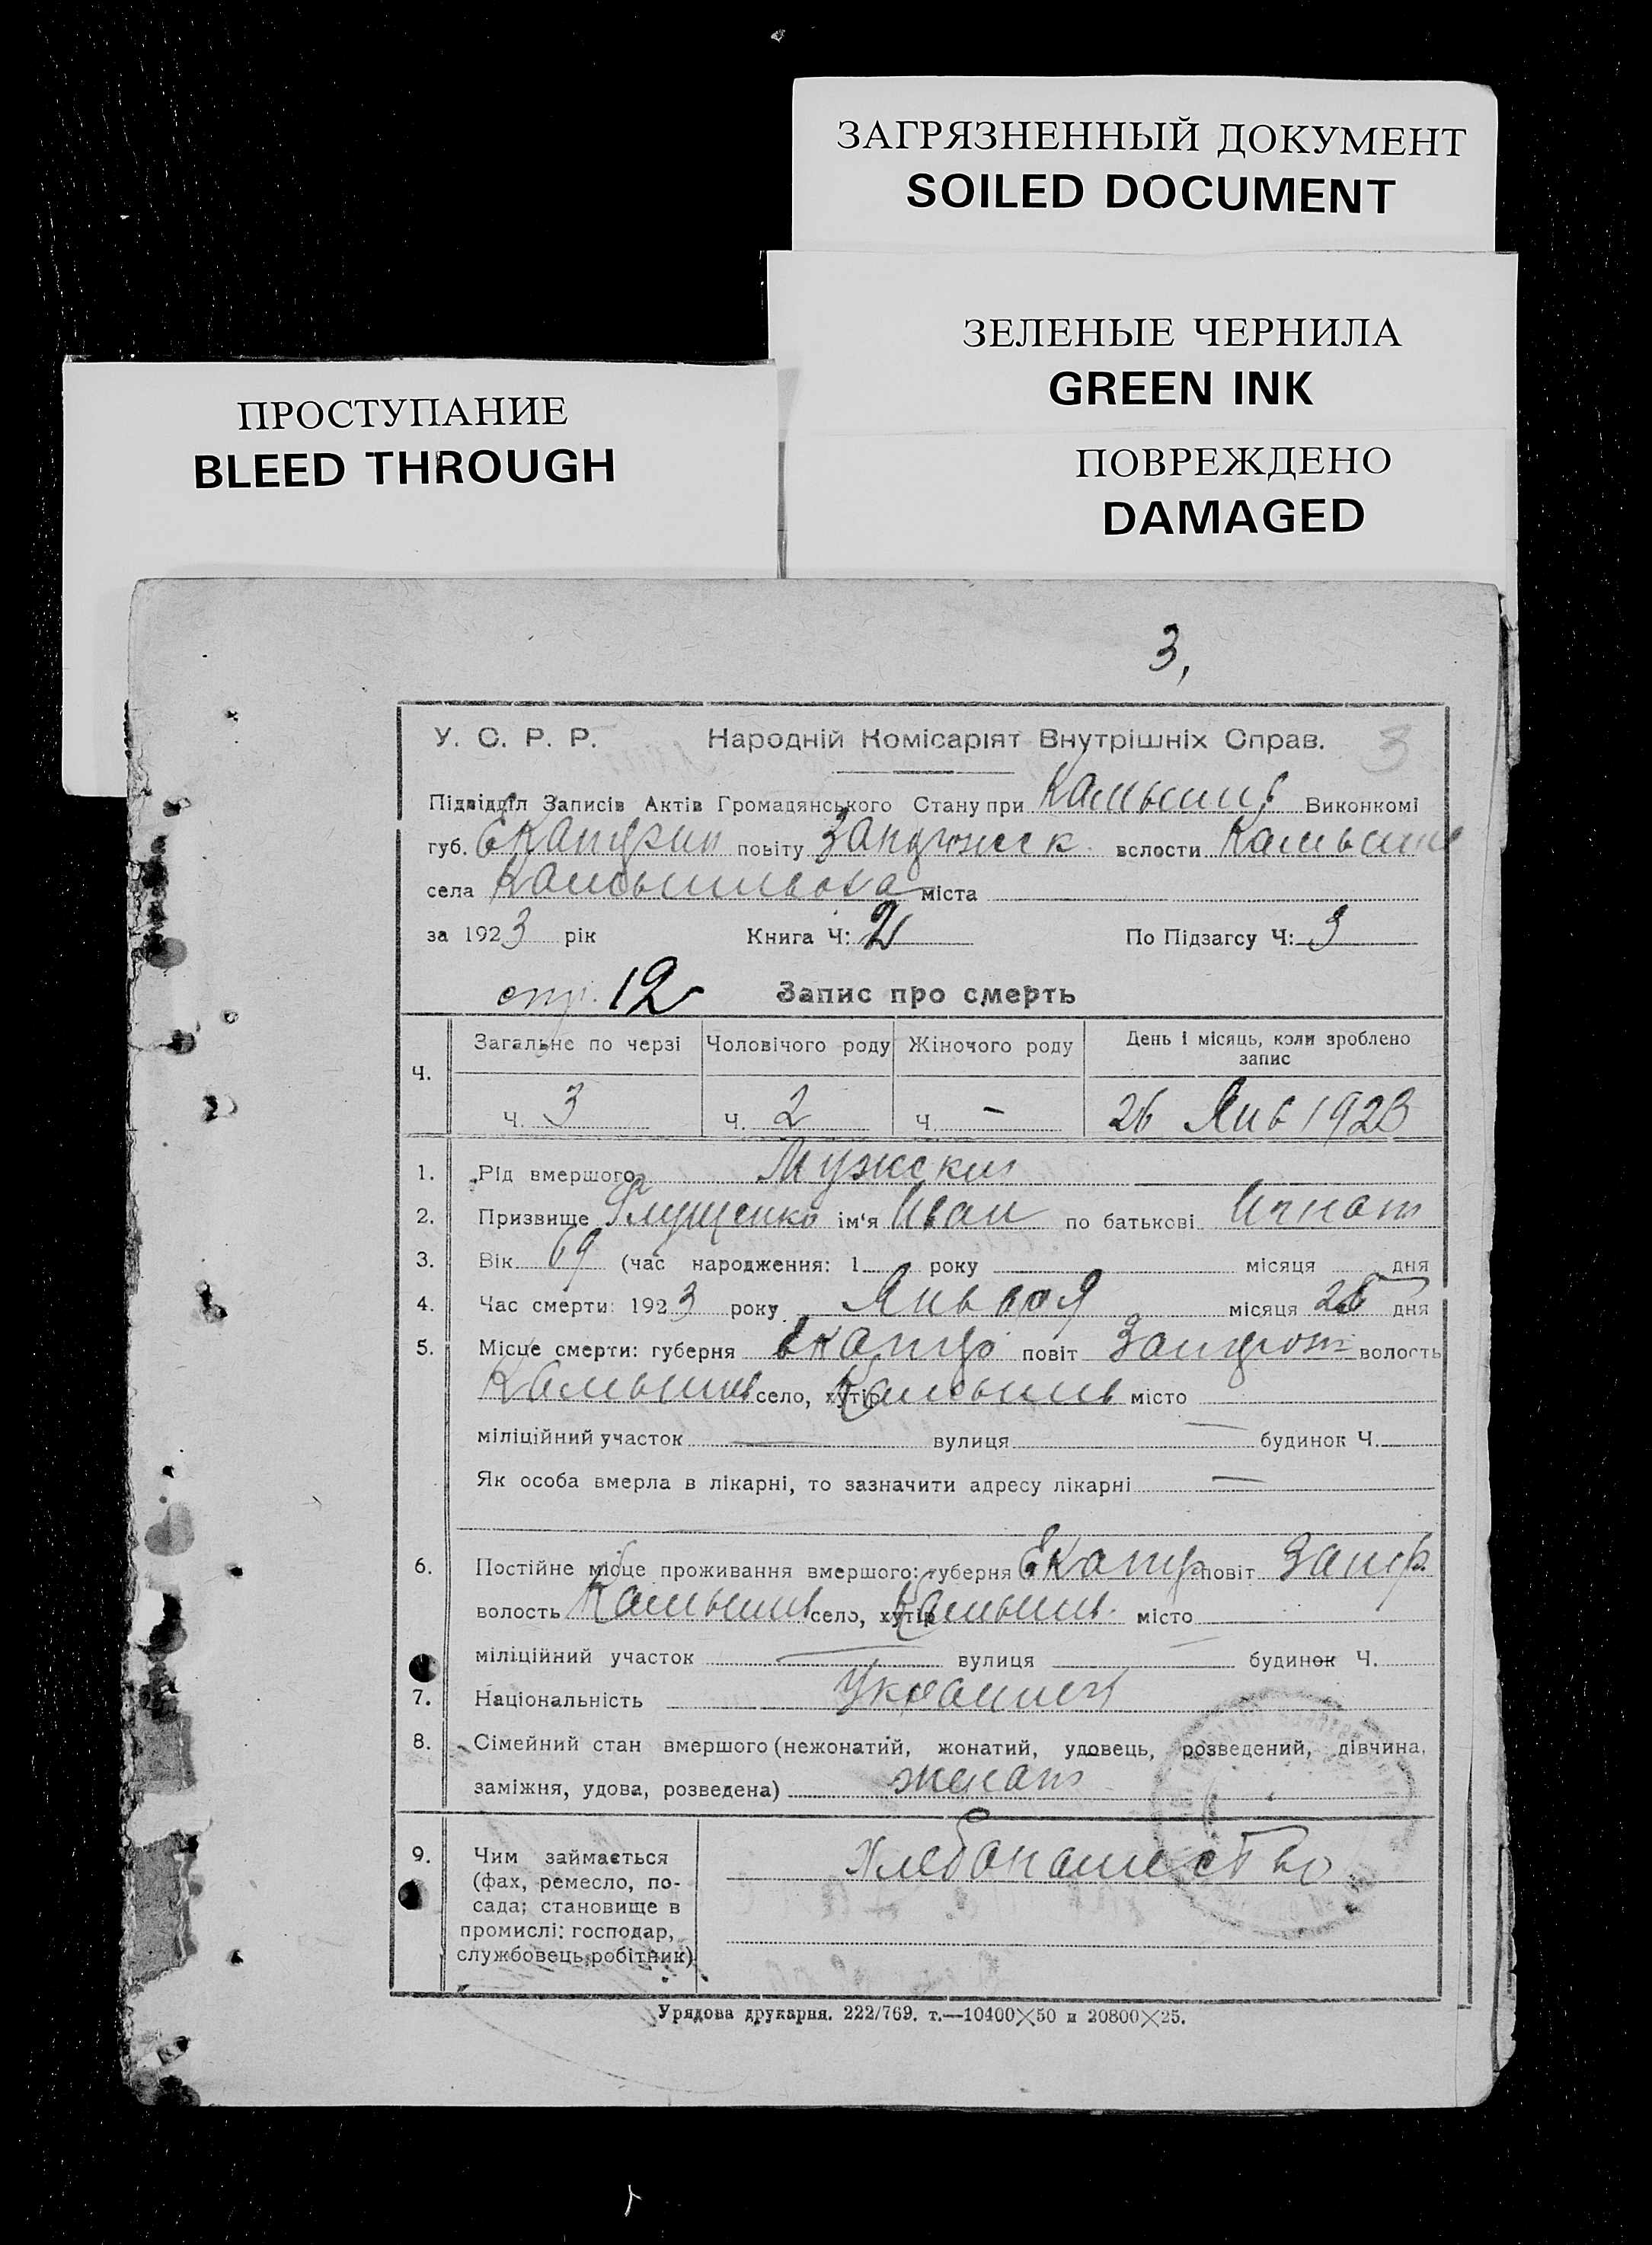 ЗАГРЯЗНЕННЫЙ ДОКУМЕНТ
SOILED DOCUMENT
ЗЕЛЕНЫЕ ЧЕРНИЛА
GREEN INK
ПРОСТУПАНИЕ
BLEED THROUGH
ПОВРЕЖДЕНО
DAMAGED
3,
У. С. Р. Р. Народній Комісаріят Внутрішніх Справ. 3
Підвідділ Записів Актів Громадянського Стану при Камышев Виконкомі
губ. Екатерин повіту волости Камыше
села міста
за 1923 рік Книга Ч: 2 По Підзагсу Ч: 3
стр. 12 Запис про смерть
Ч. Загальне по черзі Чоловічого роду Жіночого роду День і місяць, коли зроблено запис
Ч. 3 Ч. 2 Ч. – 26 Янв 1923
1. Рід вмершого Мужской
2. Призвище Глущенко ім'я Иван по батькові Игнат
3. Вік 69 (час народження: 1 року місяця дня
4. Час смерти: 1923 року Января місяця 26 дня
5. Місце смерти: губерня Екатер повіт Запорож волость
Камышев село, хутір Камышев місто
міліційний участок — вулиця — будинок Ч.
Як особа вмерла в лікарні, то зазначити адресу лікарні —
6. Постійне місце проживання вмершого: губерня Екатер повіт Запор.
волость Камышев село, хутір Камышев. місто
міліційний участок — вулиця — будинок Ч.
7. Національність Украинец
8. Сімейний стан вмершого (нежонатий, жонатий, удовець, розведений, дівчина,
заміжня, удова, розведена) женат
9. Чим займається Хлебопашество
(фах, ремесло, по-
сада; становище в
промислі: господар,
службовець, робітник)
Урядова друкарня. 222/769. т.—10400×50 и 20800×25.